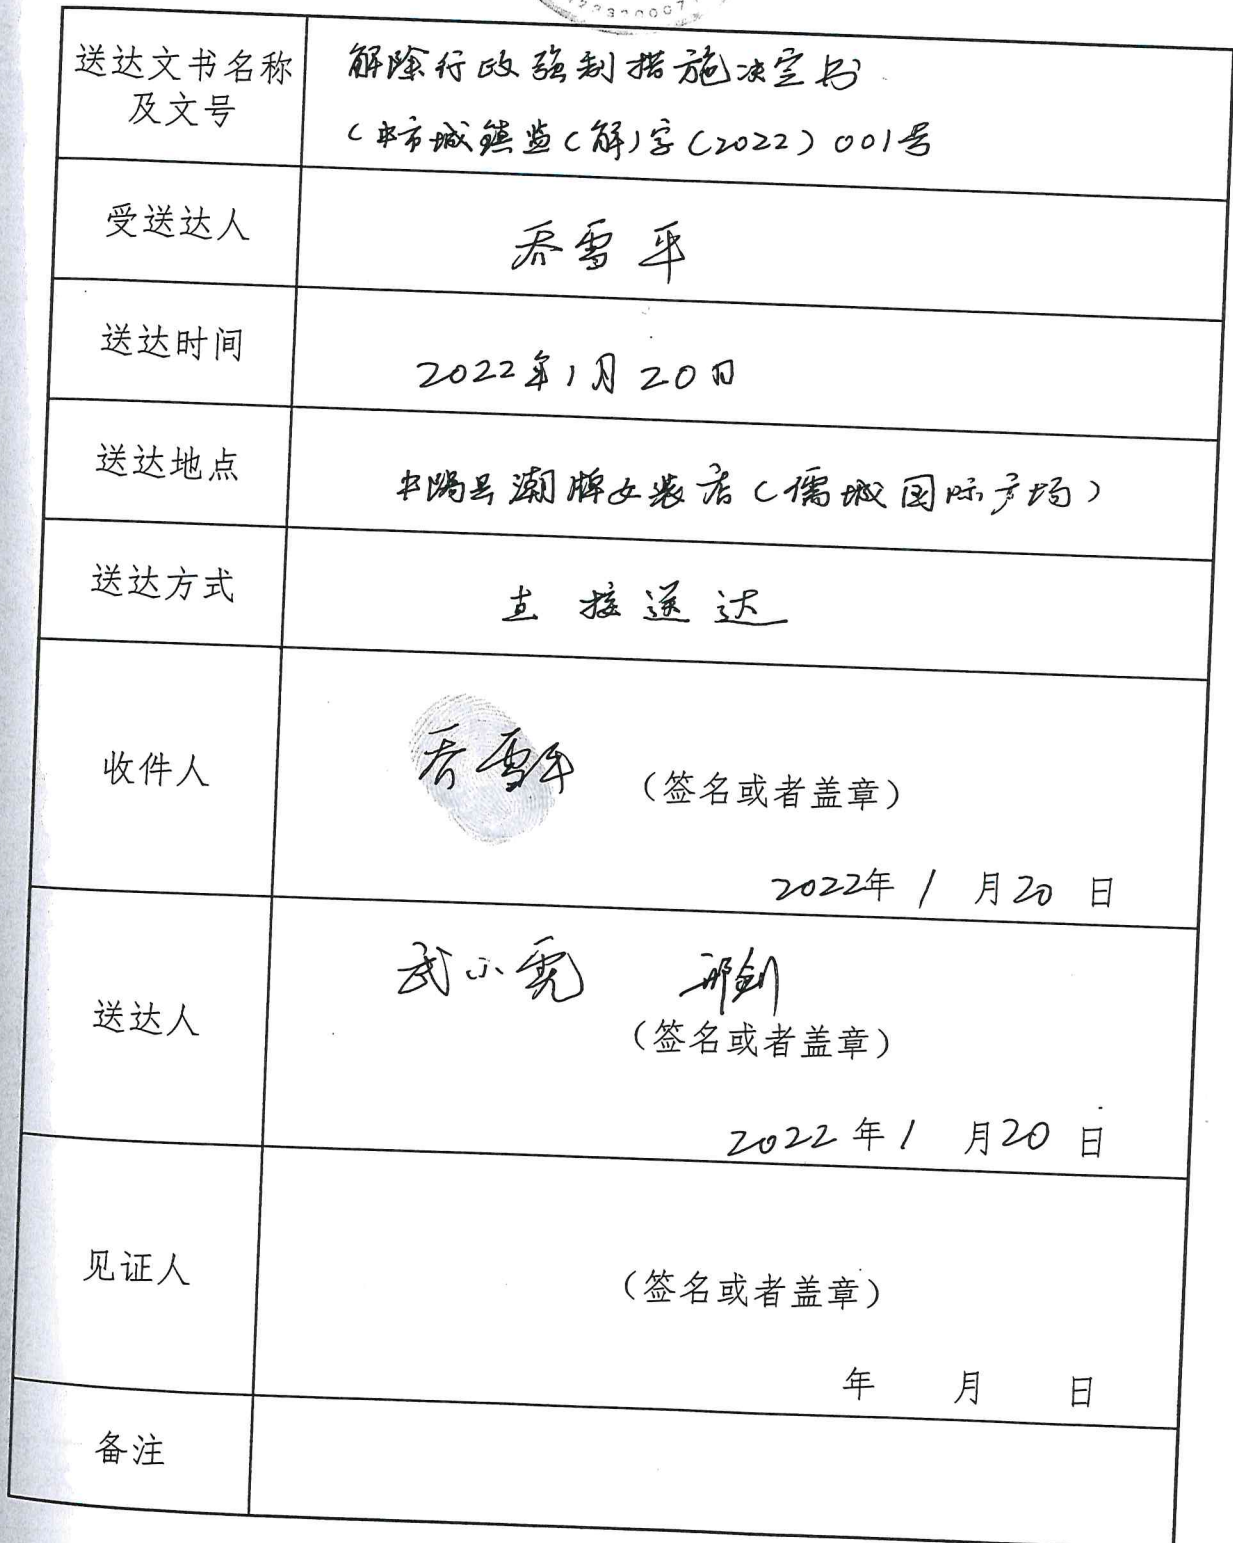 送达文书名称
及文号
解除行政强制措施决定书
(中市城镇监(解)字(2022)001号
受送达人
乔雪平
送达时间
2022年1月20日
送达地点
中阳县潮牌女装店(儒城国际广场)
送达方式
直接送达
收件人
乔雪平
(签名或者盖章)
2022年1月20日
送达人
武小霓 邢剑
(签名或者盖章)
2022年1月20日
见证人
(签名或者盖章)
年 月 日
备注